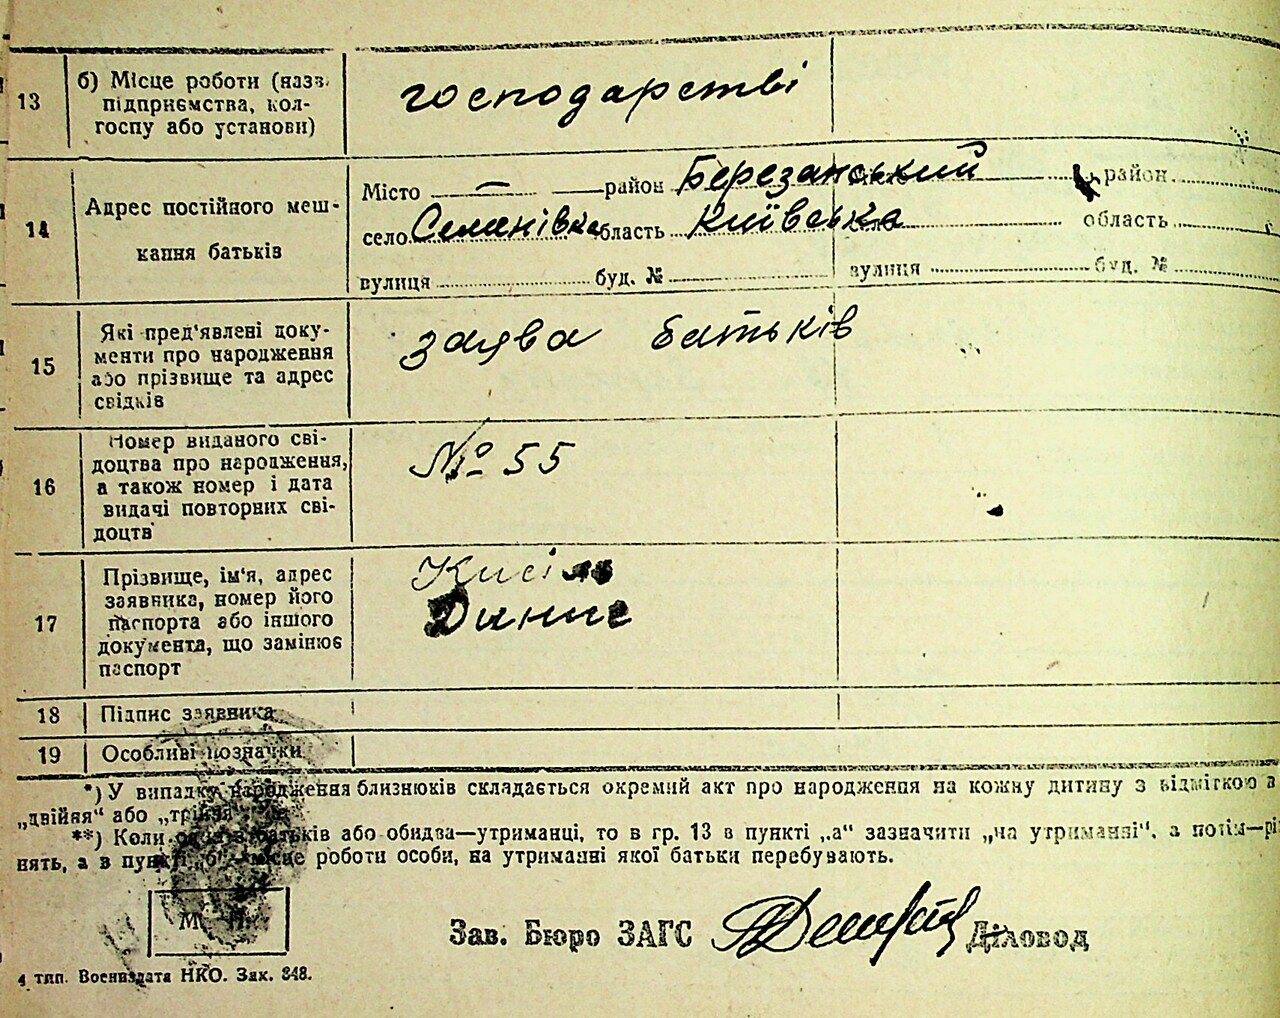 13
б) Місце роботи (назв.
підприємства, кол-
госпу або установи)
господарстві
14
Адрес постійного меш-
кання батьків
Місто — район Березанський район
село Семанівка область Київська область
вулиця буд. № вулиця буд. №
15
Які пред'явлені доку-
менти про народження
або прізвище та адрес
свідків
заява батьків
16
Номер виданого сві-
доцтва про народження,
а також номер і дата
видачі повторних сві-
доцтв
№ 55
17
Прізвище, ім'я, адрес
заявника, номер його
паспорта або іншого
документа, що замінює
паспорт
Кисіль
18 Підпис заявника
19 Особливі позначки
*) У випадку народження близнюків складається окремий акт про народження на кожну дитину з відміткою
„двійня“ або „трійня“
**) Коли один з батьків або обидва—утриманці, то в гр. 13 в пункті „а“ зазначити „на утриманні“, а потім—рі
нять, а в пункті „б“—місце роботи особи, на утриманні якої батьки перебувають.
М. П.
Зав. Бюро ЗАГС Діловод
4 тип. Воениздата НКО. Зак. 848.